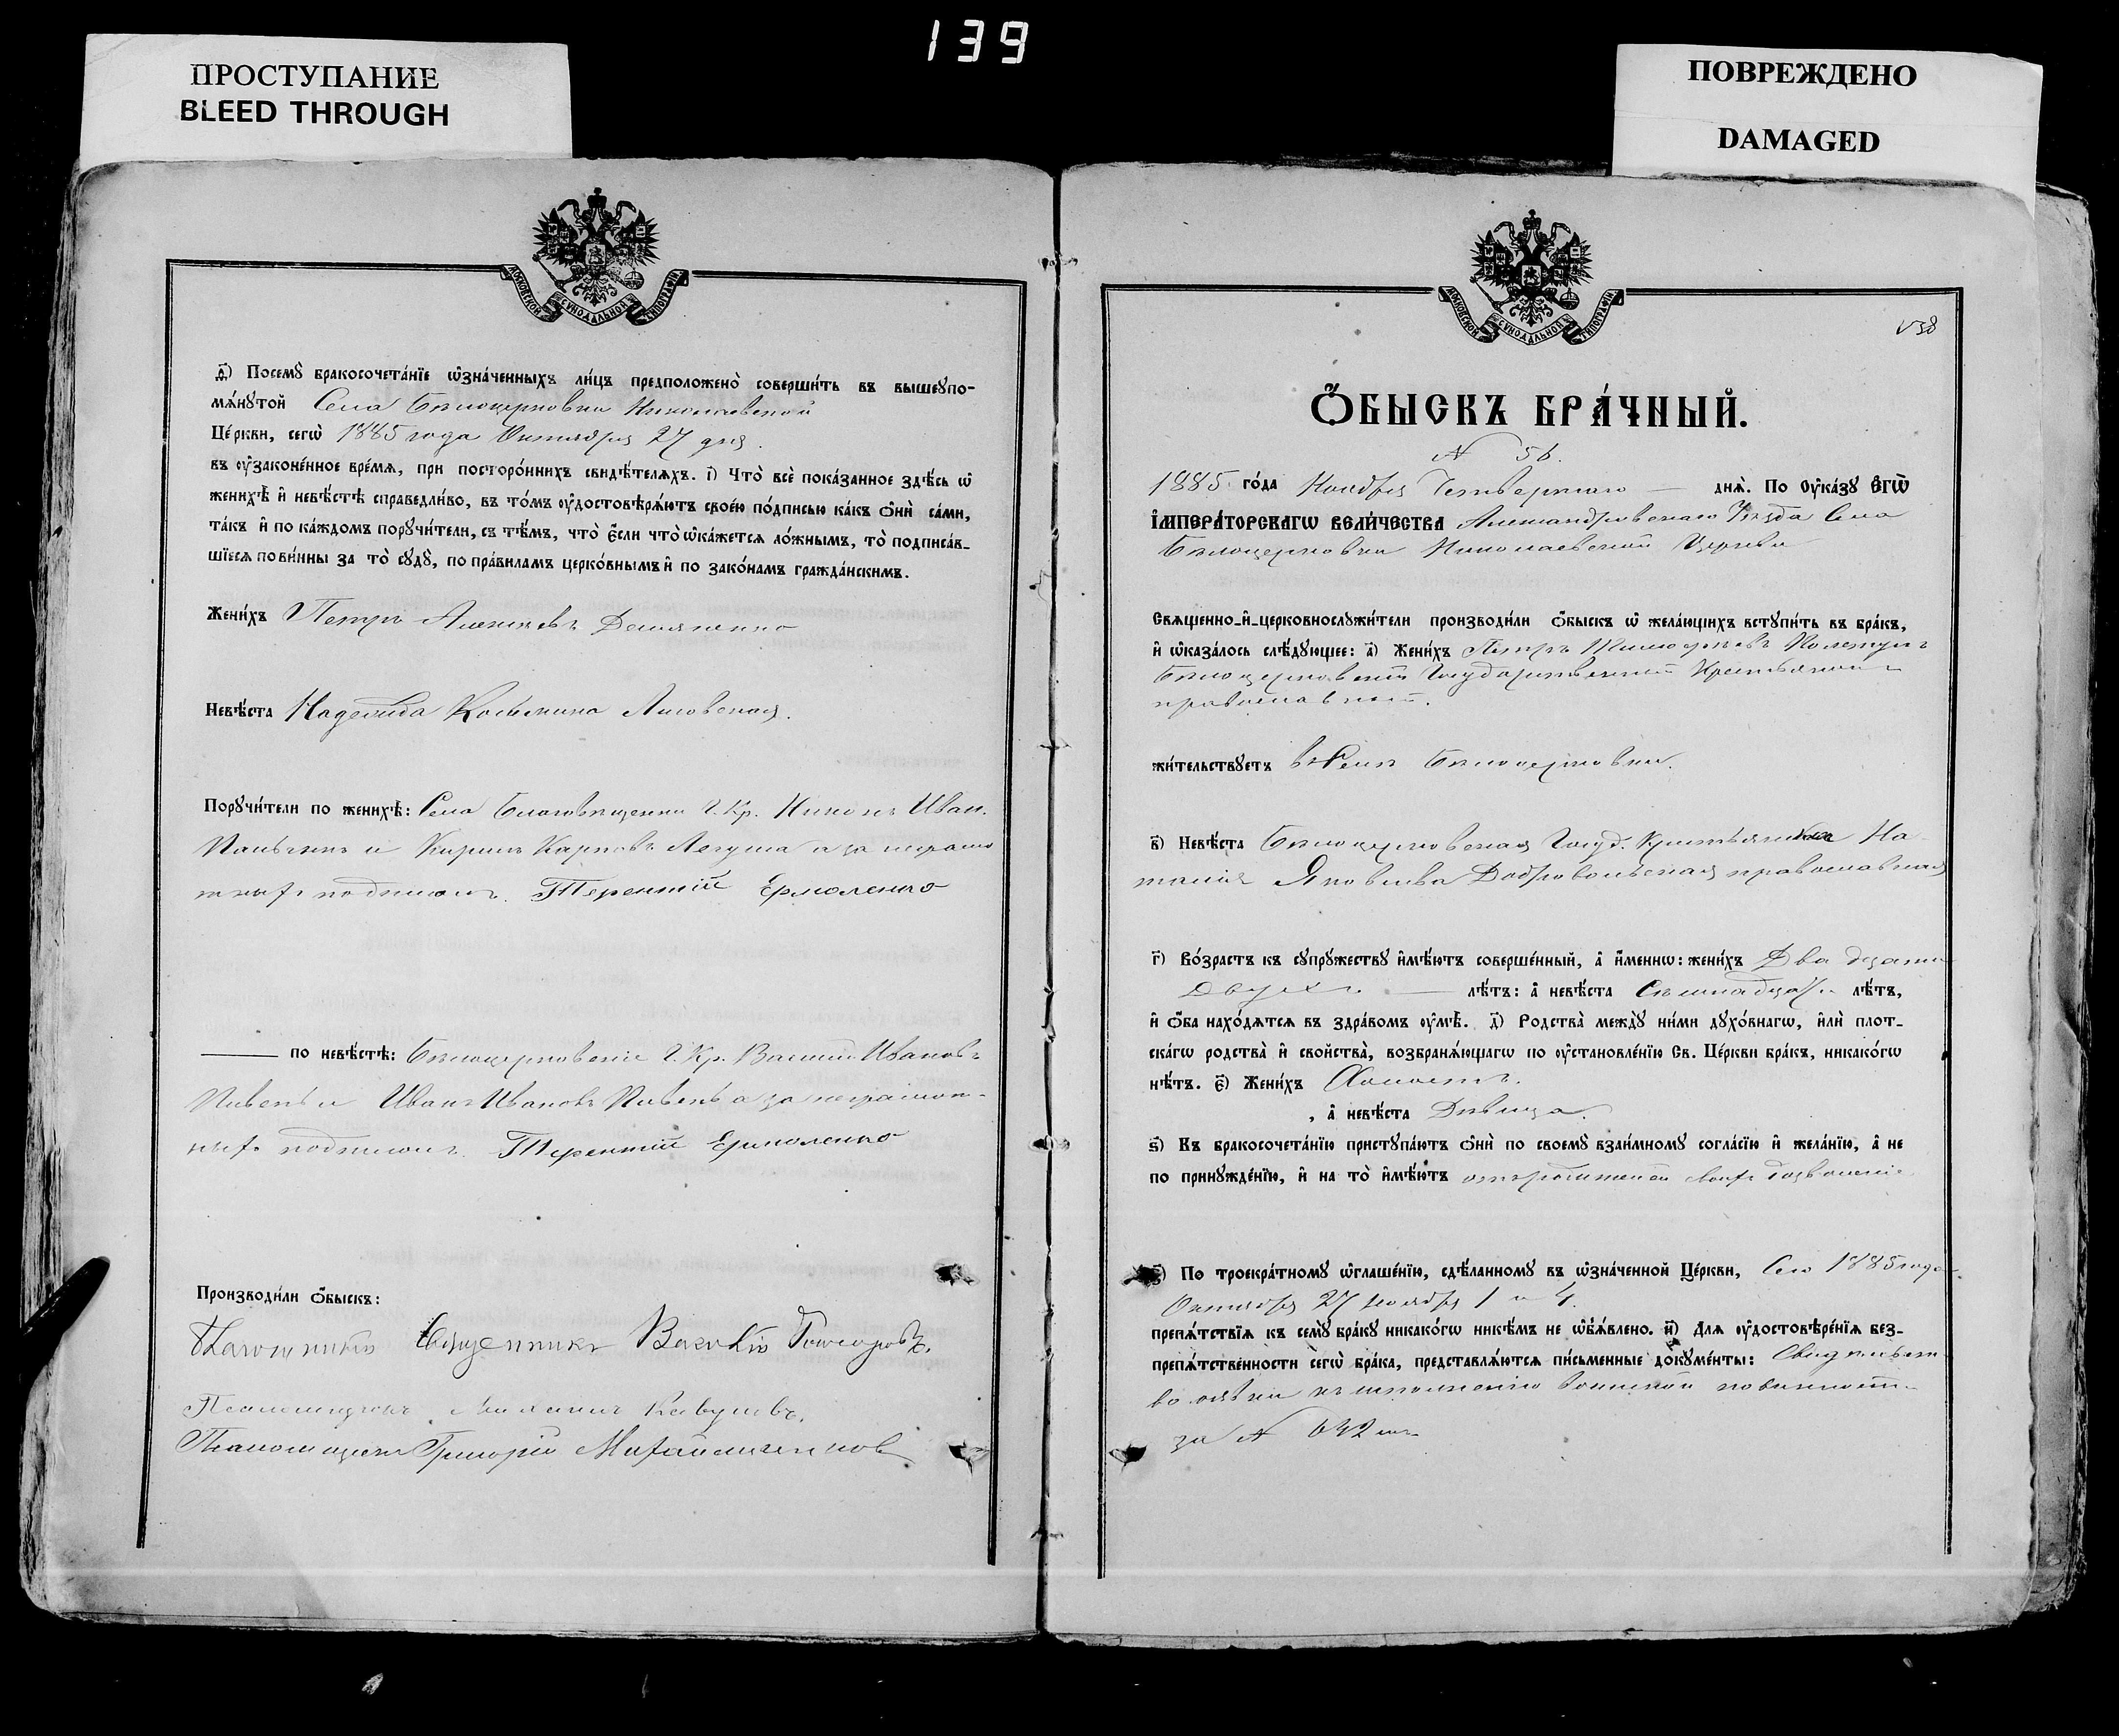 139
ПРОСТУПАНИЕ
BLEED THROUGH
ПОВРЕЖДЕНО
DAMAGED
МОСКОВСКОЙ СУНОДАЛЬНОЙ ТИПОГРАФІИ
ѳ҃) Посемꙋ̀ бракосочета́нїе ѡ҆зна́ченныхъ ли́цъ предположено̀ соверши́ть въ вышеꙋпо-
мѧ́нꙋтой Села Бѣлоцерковки Николаевской
Це́ркви, сегѡ̀ 1885 года Октября 27 дня.
въ ᲂу҆законе́нное вре́мѧ, при посторо́ннихъ свидѣ́телѧхъ. і҃) Что̀ всѐ пока́занное здѣ́сь ѡ҆
женихѣ̀ и҆ невѣ́стѣ справедли́во, въ то́мъ ᲂу҆достовѣрѧ́ютъ свое́ю по́дписью ка́къ ѻ҆нѝ са́ми,
та́къ и҆ по ка́ждомъ порꙋчи́тели, съ тѣ́мъ, что̀ є҆́сли что̀ ѡ҆ка́жетсѧ ло́жнымъ, то̀ подписа́в-
шїесѧ пови́нны за то̀ сꙋдꙋ̀, по пра́виламъ церко́внымъ и҆ по зако́намъ гражда́нскимъ.
Жени́хъ Петръ Алексѣевъ
Невѣ́ста Надежда Косьмина Лисовская.
Порꙋчи́тели по женихѣ̀: Села Благовѣщенки Г. Кр. Никонъ Иван.
и Кирилъ Карповъ Легуша а за неграмо
тныхъ подписалъ Терентій Ермоленко
по невѣ́стѣ: Бѣлоцерковскіе Г. Кр. Василій Ивановъ
Пивень и Иванъ Ивановъ Пивень а за неграмот-
ныхъ подписалъ Терентій Ермоленко
Производи́ли ѻ҆́быскъ:
Священникъ
Псаломщикъ
Псаломщикъ Григорій
МОСКОВСКОЙ СУНОДАЛЬНОЙ ТИПОГРАФІИ
138
Ѻ҆́БЫСКЪ БРА́ЧНЫЙ.
№ 56.
1885 го́да Ноября Четвертаго дня̀. По Оу҆ка́зꙋ Є҆гѡ̀
І҆мпера́торскагѡ Вели́чества Александровскаго Уѣзда Села
Бѣлоцерковки Николаевской Церкви
Свѧщенно-и҆-церковнослꙋжи́тели производи́ли ѻ҆́быскъ ѡ҆ жела́ющихъ встꙋпи́ть въ бра́къ,
и҆ ѡ҆каза́лось слѣ́дꙋющее: а҃) Жени́хъ Петръ Тимофѣевъ
Бѣлоцерковскій Государственный Крестьянинъ
православный.
жи́тельствꙋетъ въ Селѣ Бѣлоцерковки.
в҃) Невѣ́ста Бѣлоцерковская Госуд. Крестьянка На-
талія Яковлева Добровольская православная
г҃) Во́зрастъ къ сꙋпрꙋ́жествꙋ и҆мѣ́ютъ соверше́нный, а҆ и҆́меннѡ: жени́хъ Двадцати
Двухъ лѣ́тъ: а҆ невѣ́ста Семнадцати лѣ́тъ,
и҆ ѻ҆́ба нахо́дѧтсѧ въ здра́вомъ ᲂу҆мѣ̀. д҃) Родства̀ междꙋ̀ ни́ми дꙋхо́внагѡ, и҆лѝ плот-
ска́гѡ родства̀ и҆ сво́йства̀, возбранѧ́ющагѡ по ᲂу҆становле́нїю Св. Це́ркви бра́къ, никако́гѡ
нѣ́тъ. є҃) Жени́хъ Холостъ.
, а҆ невѣ́ста Дѣвица.
ѕ҃) Къ бракосочета́нїю пристꙋпа́ютъ ѻ҆нѝ по своемꙋ̀ взаи́мномꙋ согла́сїю и҆ жела́нїю, а҆ не
по принꙋжде́нїю, и҆ на то̀ и҆мѣ́ютъ отъ родителей своихъ дозволеніе
з҃) По троекра́тномꙋ ѡ҆глаше́нїю, сдѣ́ланномꙋ въ ѡ҆зна́ченной Це́ркви, Сего 1885 года
Октября 27 ноября 1 и 4.
препѧ́тствїѧ къ семꙋ̀ бра́кꙋ никако́гѡ никѣ́мъ не ѡ҆б̾ѧ́влено. и҃) Длѧ ᲂу҆достовѣре́нїѧ без-
препѧ́тственности сегѡ̀ бра́ка, представлѧ́ютсѧ пи́сьменные докꙋме́нты: Свидѣтельст-
во о явкѣ къ исполненію воинской повинности
за № 642